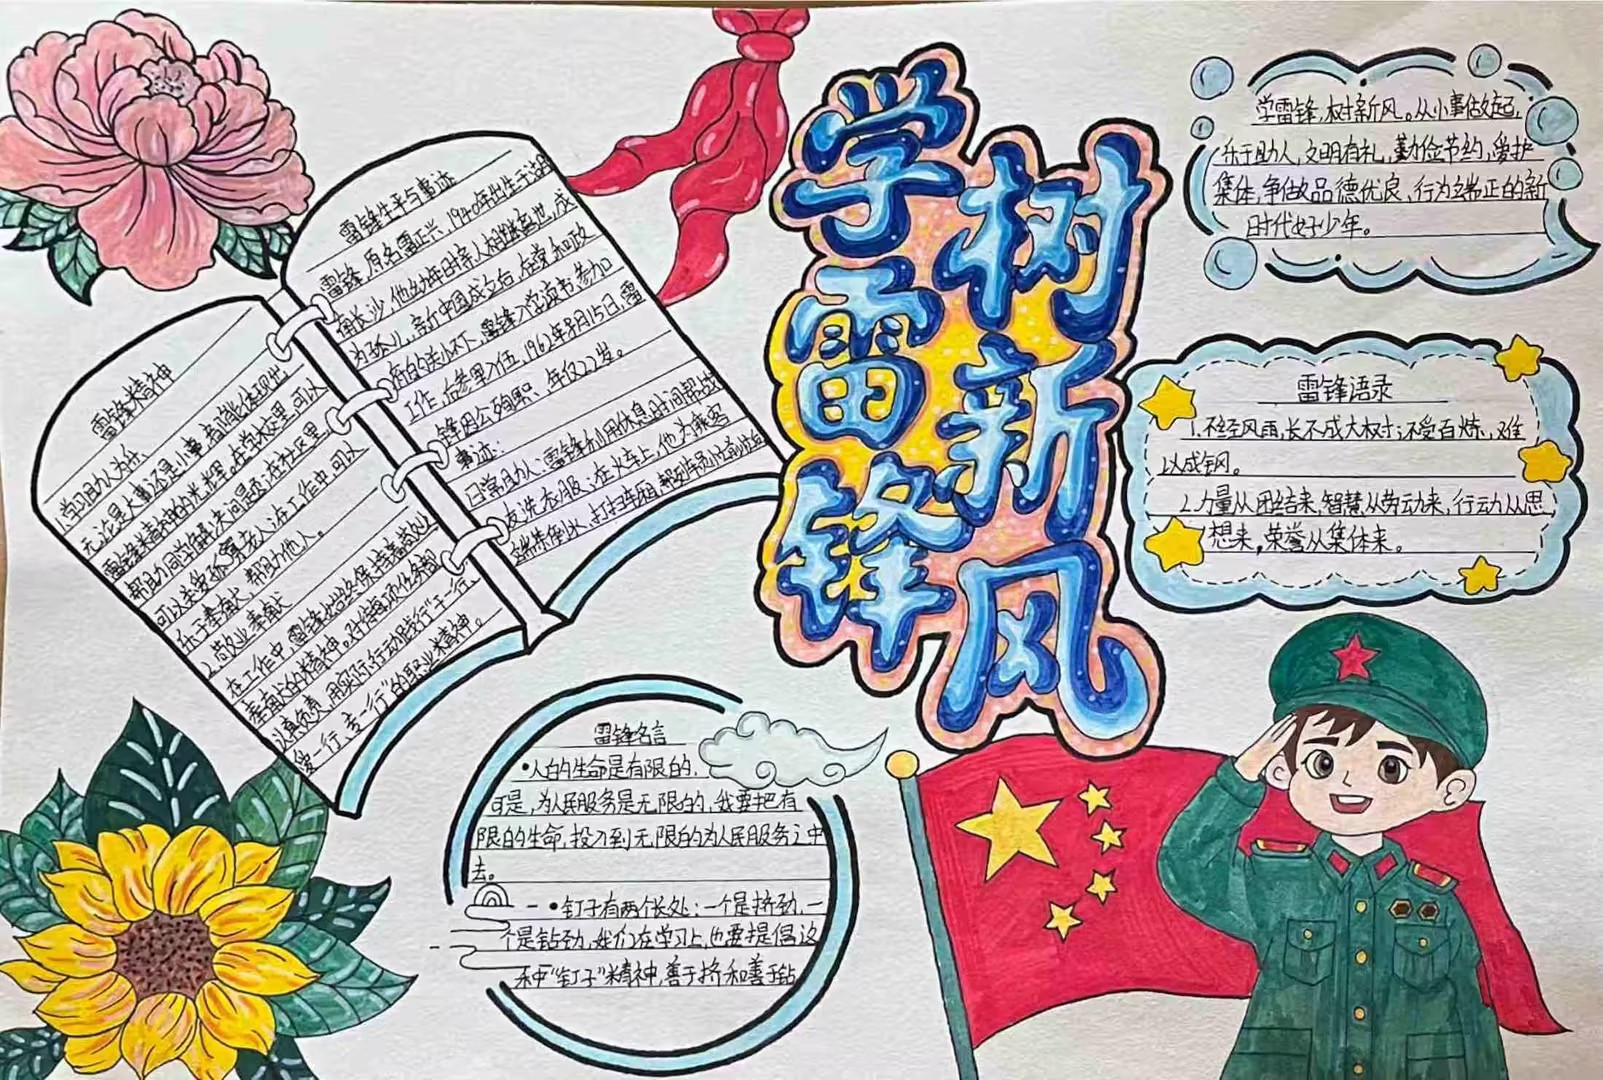 学雷锋
树新风
雷锋精神
1.学习助人为乐
无论是大事还是小事都能体现出
雷锋精神的光辉。在学校里,可以
帮助同学解决问题;在社区里,
可以去爱孤寡老人;在工作中,可以
乐于奉献,帮助他人。
2.敬业奉献
在工作中,雷锋始终保持着敬业
奉献的精神。对待每项任务都
认真负责,用实际行动践行“干一行,
爱一行,专一行”的职业精神。
雷锋生平与事迹
雷锋,原名雷正兴,1940年出生于湖
南长沙,他幼年时亲人相继离世,成
为孤儿,新中国成立后,在党和政
府的关怀下,雷锋才学读书,参加
工作,后参军入伍,1962年8月15日,雷
锋因公殉职,年仅22岁。
事迹:
日常助人:雷锋利用休息时间帮战
友洗衣服、在火车上,他为乘客
端茶倒水,打扫车厢,
学雷锋,树新风。从小事做起,
乐于助人,文明有礼,勤俭节约,爱护
集体,争做品德优良、行为端正的新
时代好少年。
雷锋语录
1.不经风雨,长不成大树;不受百炼,难
以成钢。
2.力量从团结来,智慧从劳动来,行动从思
想来,荣誉从集体来。
雷锋名言
•人的生命是有限的,
可是,为人民服务是无限的,我要把有
限的生命,投入到无限的为人民服务之中
去。
•钉子有两个长处:一个是挤劲,一
个是钻劲,我们在学习上,也要提倡这
种“钉子”精神,善于挤和善于钻